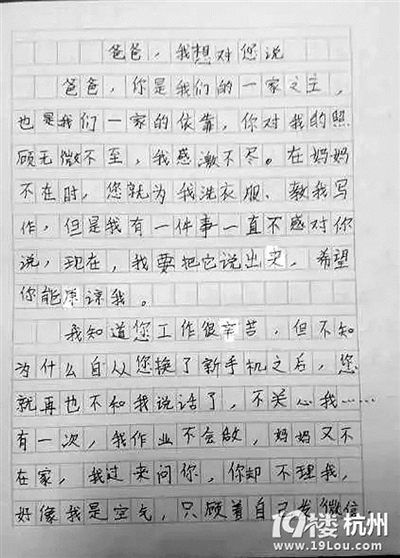 爸爸，我想对您说
爸爸，你是我们的一家之主，
也是我们一家的依靠，你对我的照
顾无微不至，我感激不尽。在妈妈
不在时，您就为我洗衣服、教我写
作，但是我有一件事一直不感对你
说，现在，我要把它说出来，希望
你能原谅我。
我知道您工作很辛苦，但不知
为什么自从您换了新手机之后，您
就再也不和我说话了，不关心我……
有一次，我作业不会做，妈妈又不
在家，我过来问你，你却不理我，
好像我是空气，只顾着自己发微信，
19楼杭州
www.19lou.com